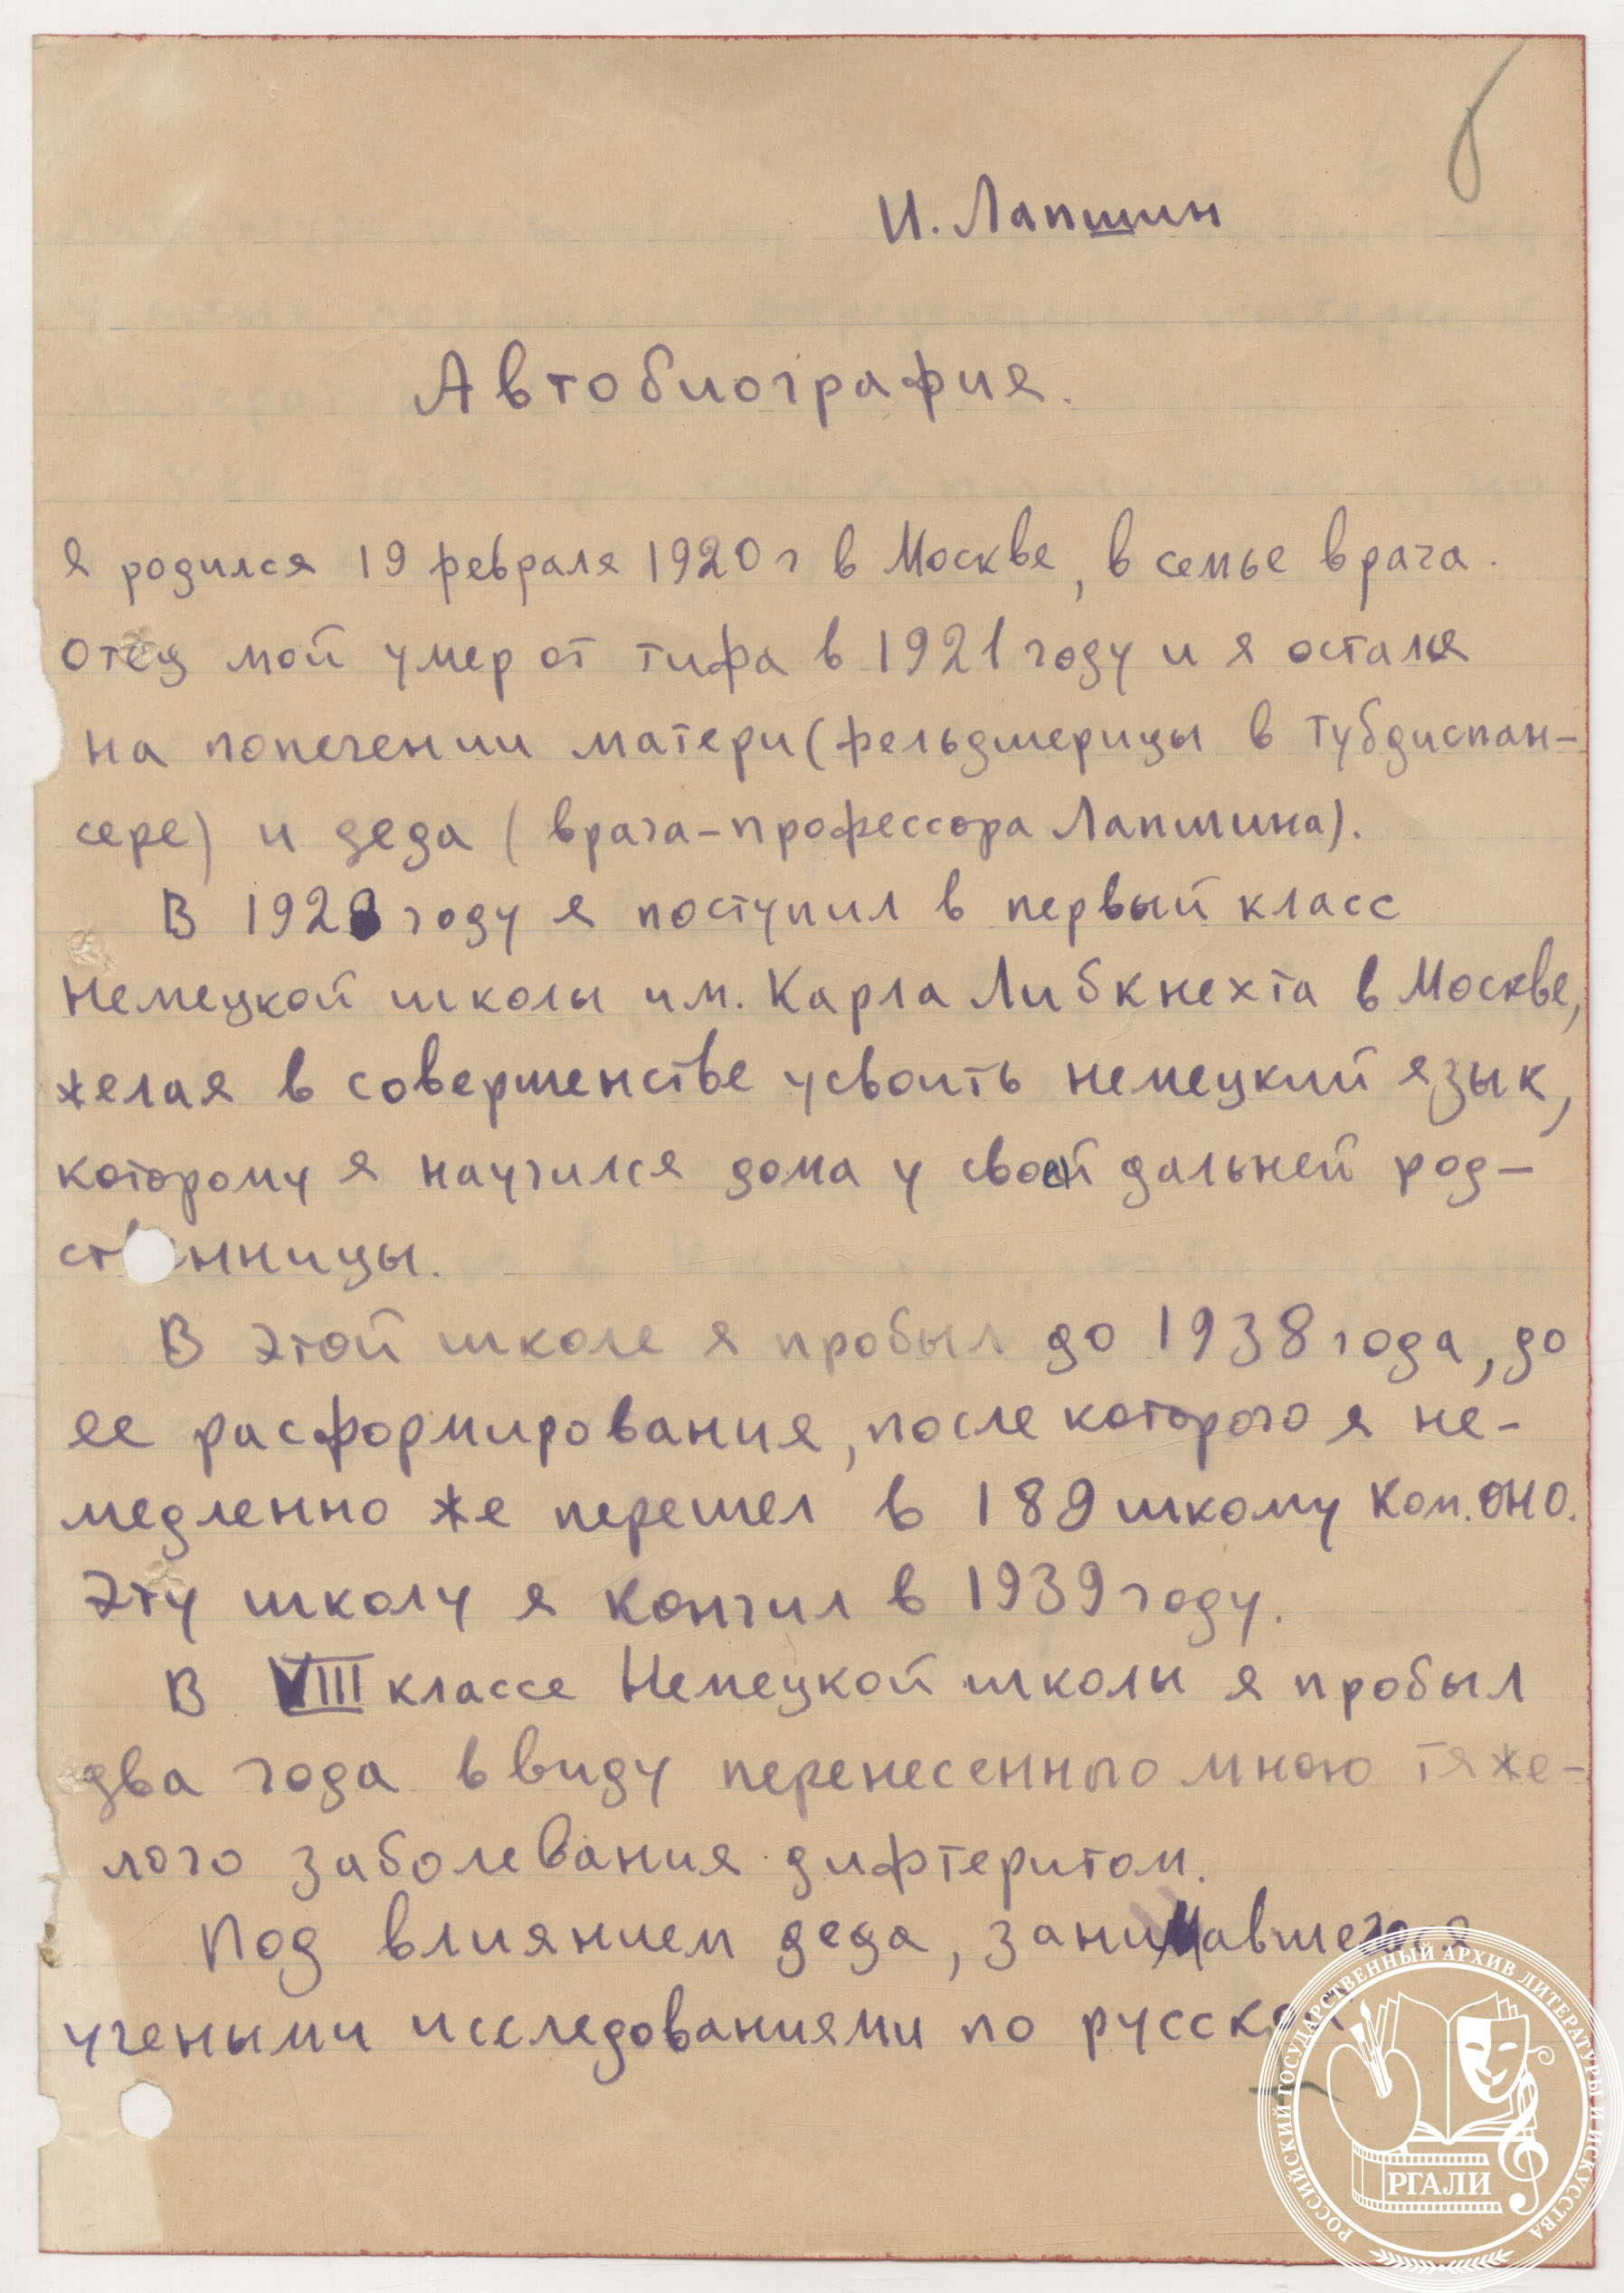 б
И. Лапшин
Автобиография.
Я родился 19 февраля 1920 г в Москве, в семье врача.
Отец мой умер от тифа в 1921 году и я остался
на попечении матери (фельдшерицы в Тубдиспан-
сере) и деда (врача-профессора Лапшина).
В 1928 году я поступил в первый класс
Немецкой школы им. Карла Либкнехта в Москве,
желая в совершенстве усвоить немецкий язык,
которому я научился дома у своей дальней род-
ственницы.
В этой школе я пробыл до 1938 года, до
ее расформирования, после которого я не-
медленно же перешел в 189 школу Ком. ОНО.
Эту школу я кончил в 1939 году.
В VIII классе Немецкой школы я пробыл
два года ввиду перенесенного мною тяже-
лого заболевания дифтеритом.
Под влиянием деда, занимавшегося
учеными исследованиями по русской
РОССИЙСКИЙ ГОСУДАРСТВЕННЫЙ АРХИВ ЛИТЕРАТУРЫ И ИСКУССТВА
РГАЛИ